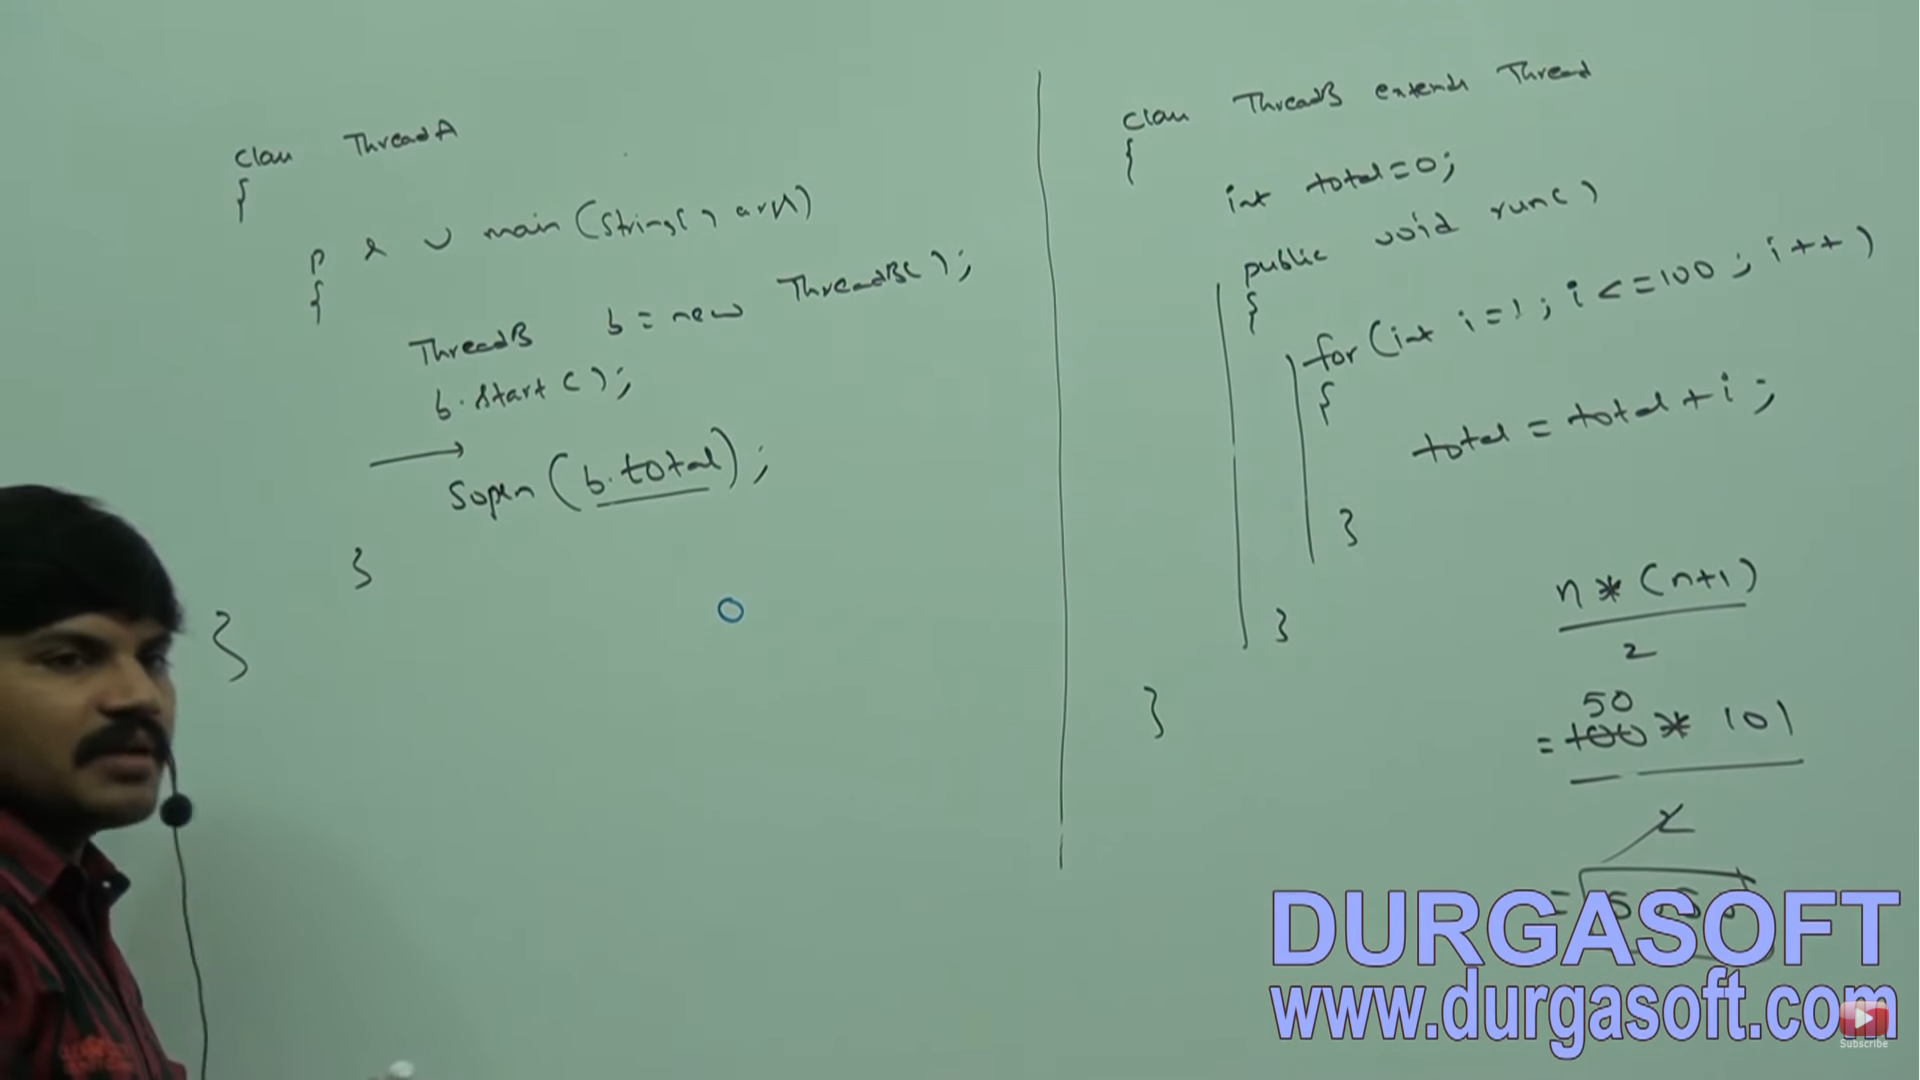 class ThreadA
{
p s v main(String[] args)
{
ThreadB b = new ThreadB();
b.start();
Sopln(b.total);
}
}
0
class ThreadB extends Thread
{
int total=0;
public void run()
{
for(int i=1; i<=100; i++)
{
total = total+i;
}
}
}
n*(n+1)
2
50
=100* 101
2
= 5050
DURGASOFT
www.durgasoft.com
Subscribe